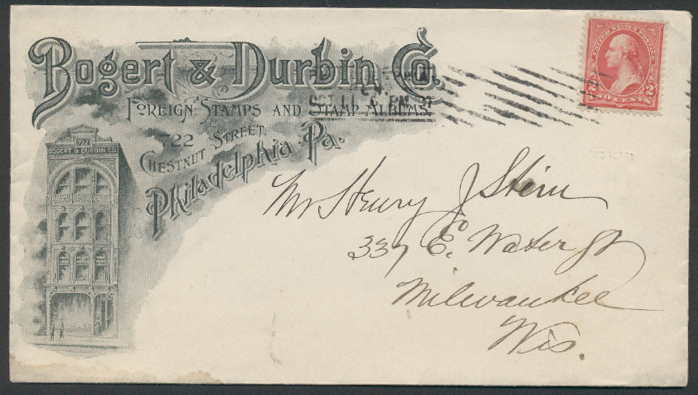 Bogert & Durbin Co.
FOREIGN STAMPS AND STAMP ALBUMS.
722
CHESTNUT STREET,
Philadelphia Pa.
722
BOGERT & DURBIN CO.
2 TWO CENTS 2
Mr Henry J Stein
337 E. Water St
Milwaukee
Wis.